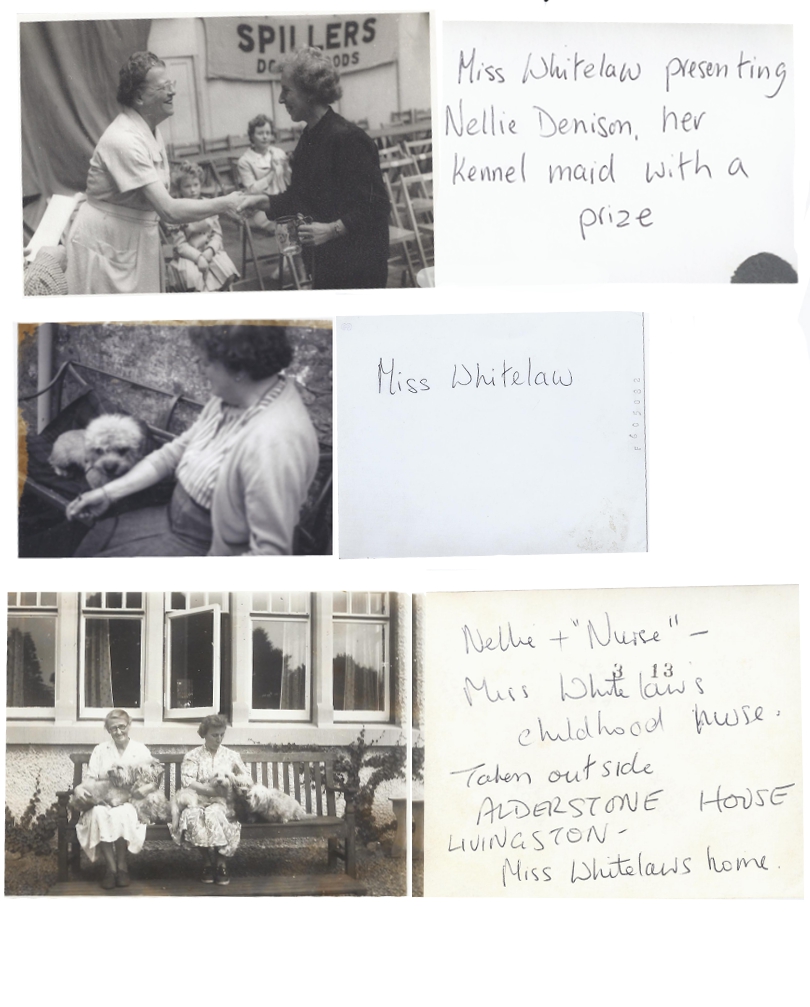 SPILLERS
Miss Whitelaw presenting
Nellie Denison, her
Kennel maid with a
prize
Miss Whitelaw
Nellie + "Nurse" –
3 13
Miss Whitelaw's
childhood nurse.
Taken outside
ALDERSTONE HOUSE
LIVINGSTON –
Miss Whitelaws home.